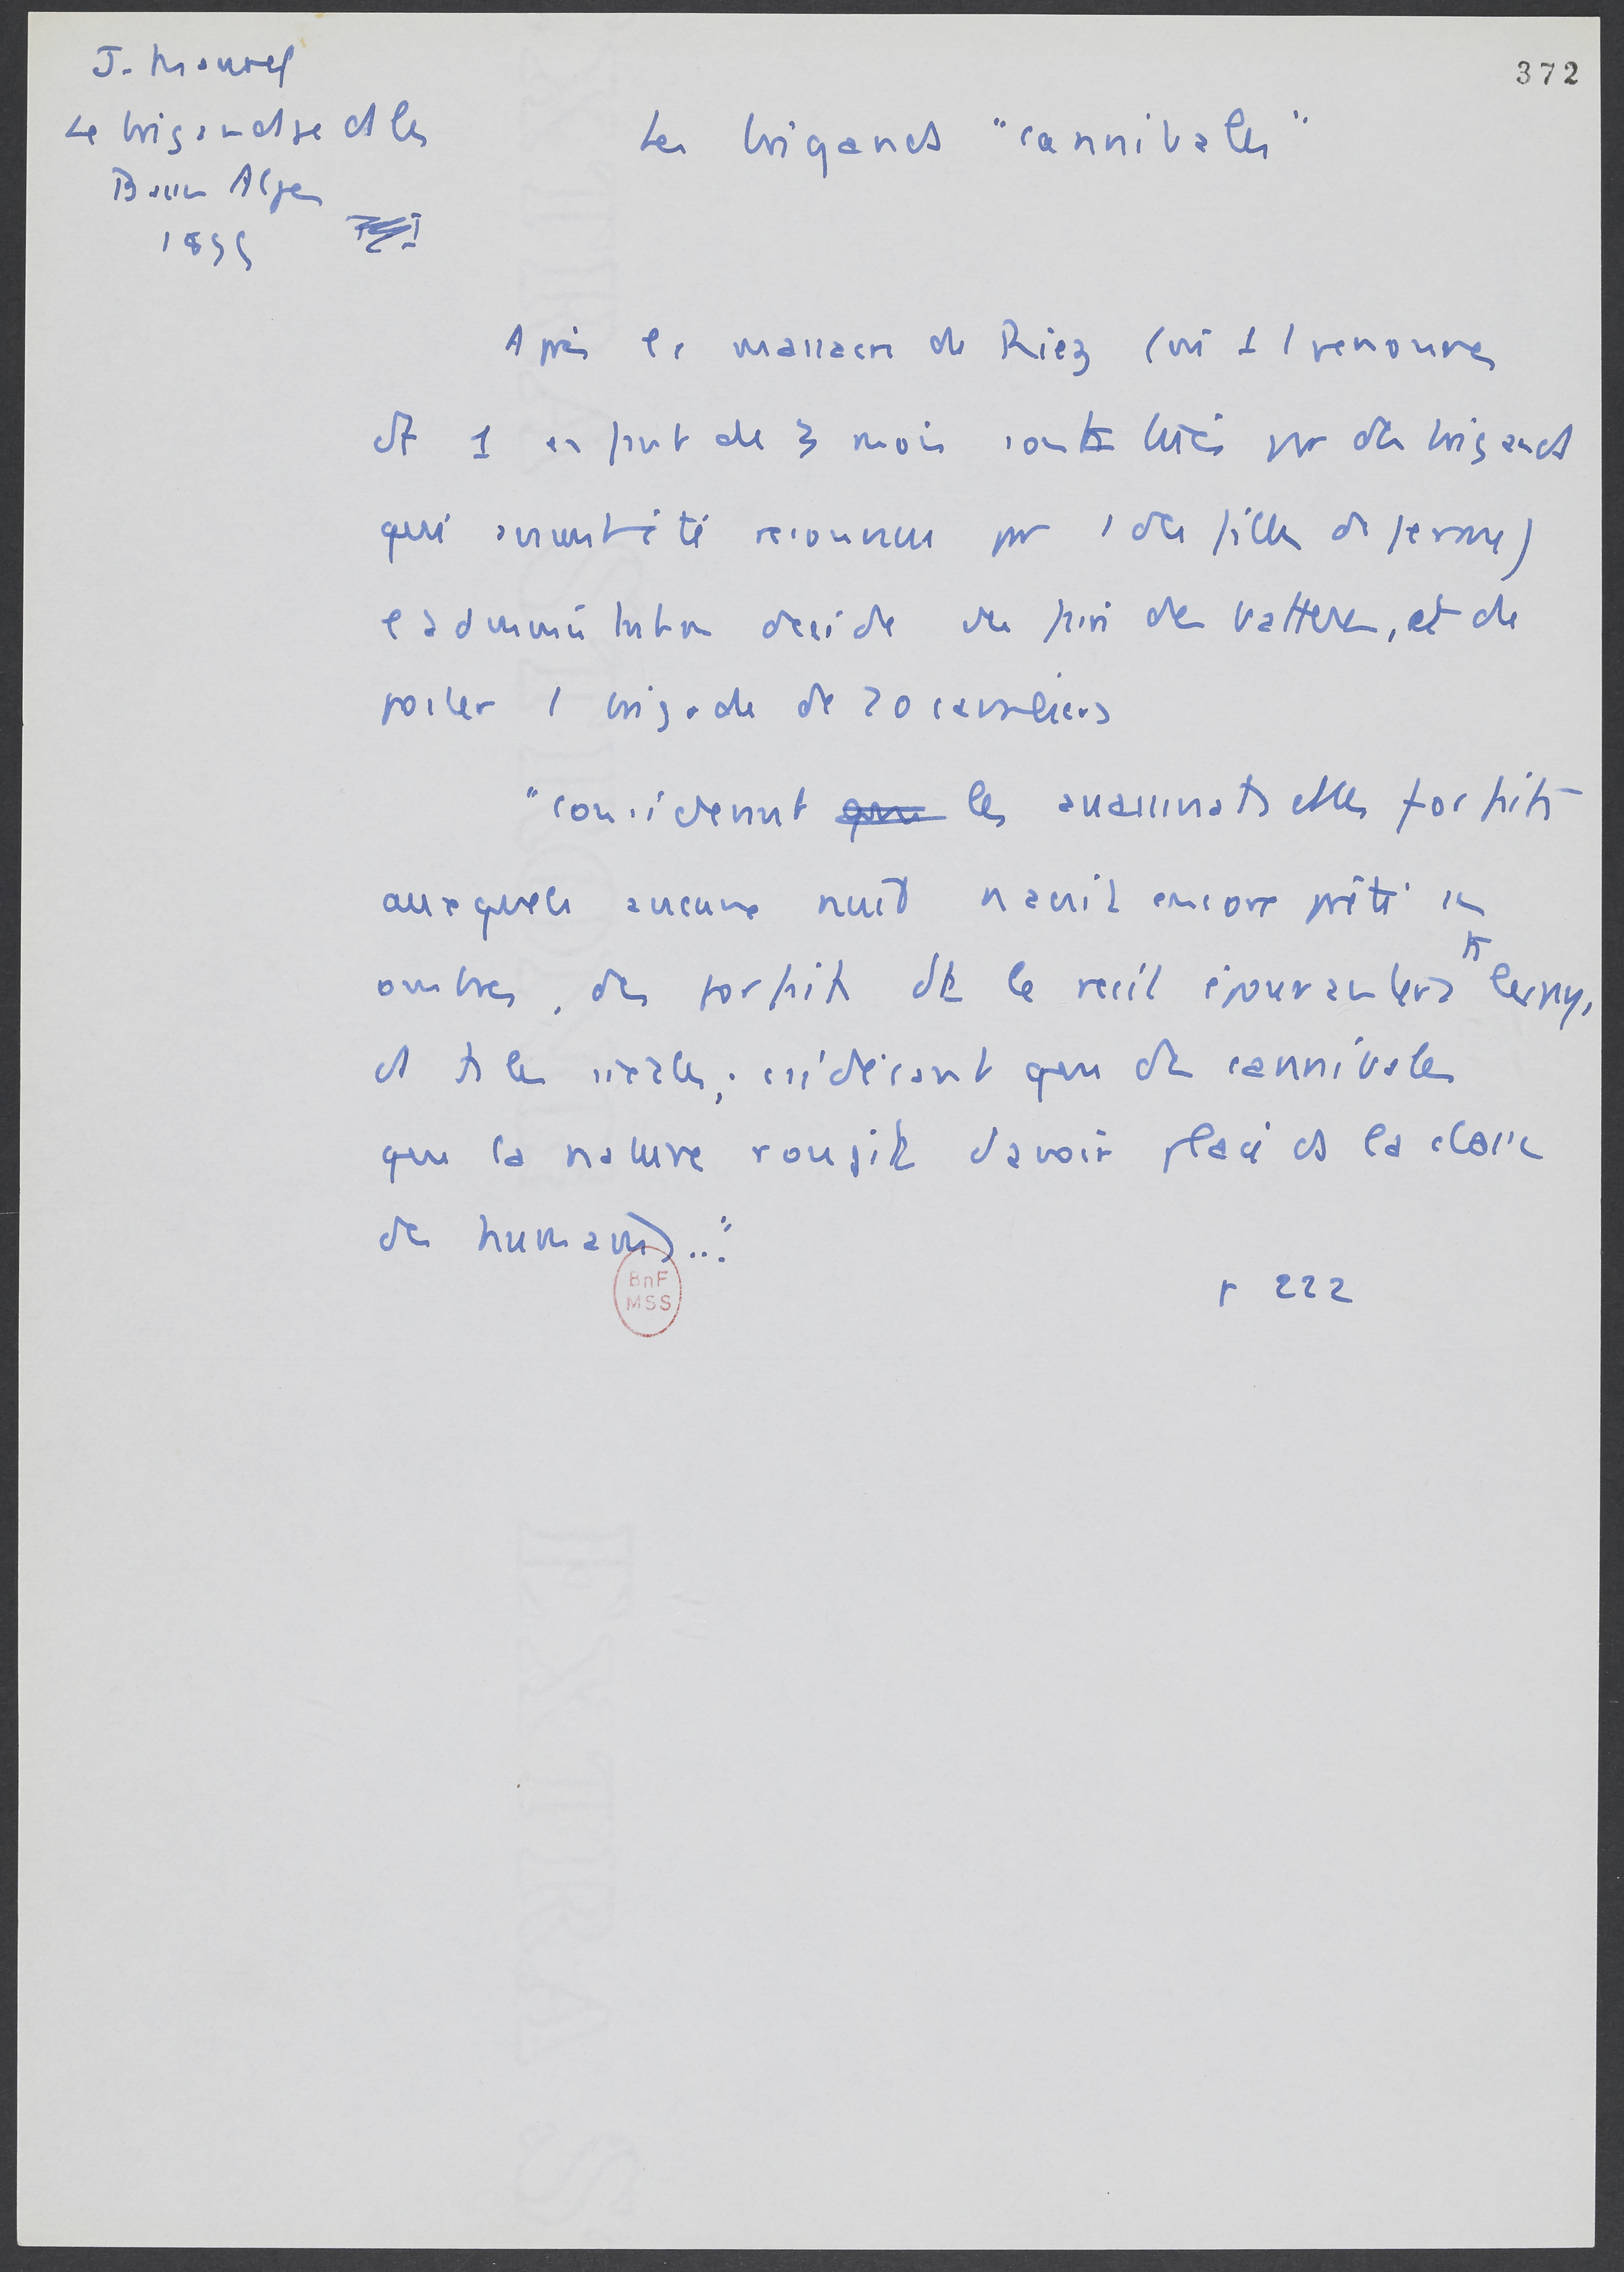 J. Maurel
Le brigandage ds les
Basses Alpes
1899
372
Les brigands "cannibales"
Après le massacre de Riez (où 11 personnes
dt 1 enfant de 3 mois sont tués par des brigands
qui avaient été reconnus par 1 des filles de ferme)
l'administration décide de faire des battues, et de
poster 1 brigade de 20 cavaliers
"considérant les assassinats et les forfaits
auxquels aucune nuit n'avait encore prêté ses
ombres, des forfaits dt le récit épouvantera ts les pays,
et ts les siècles, considérant que des cannibales
que la nature rougit d'avoir placé ds la classe
des humains..."
p 222
BnF
MSS
EXTRA STRONG
EXTRA S